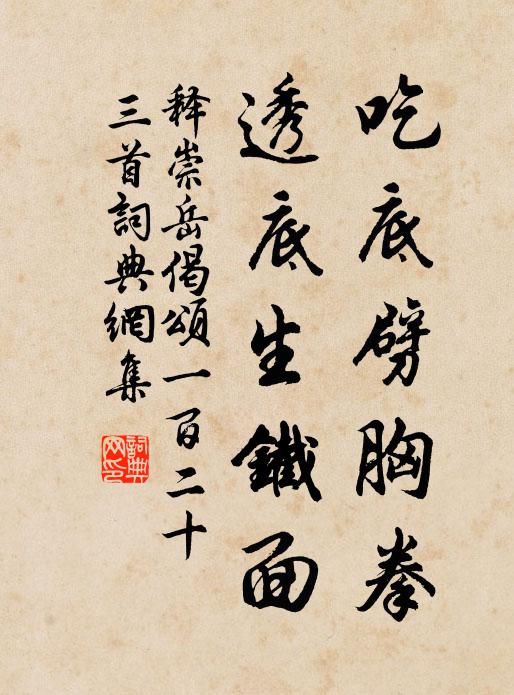 吃底劈胸拳
透底生鐵面
释崇岳偈頌一百二十
三首詞典網集
詞典网印